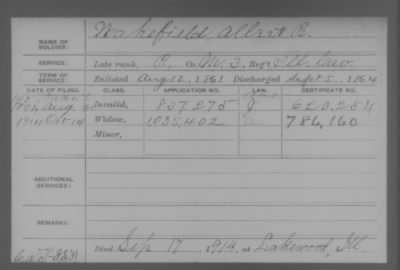 NAME OF SOLDIER: Wakefield, Albert R.
SERVICE: Late rank, P., Co. M, 3, Reg't Ill. Cav.
TERM OF SERVICE: Enlisted Aug 12, 1861 Discharged Sept 5, 1864
DATE OF FILING. CLASS. APPLICATION NO. LAW. CERTIFICATE NO.
Aug. Invalid, 837275 620.254
1914 Oct 14 Widow, 1035,402 786,160
Minor,
ADDITIONAL SERVICES:
REMARKS:
Died Sep 17, 1914, at Lakewood, Ill.